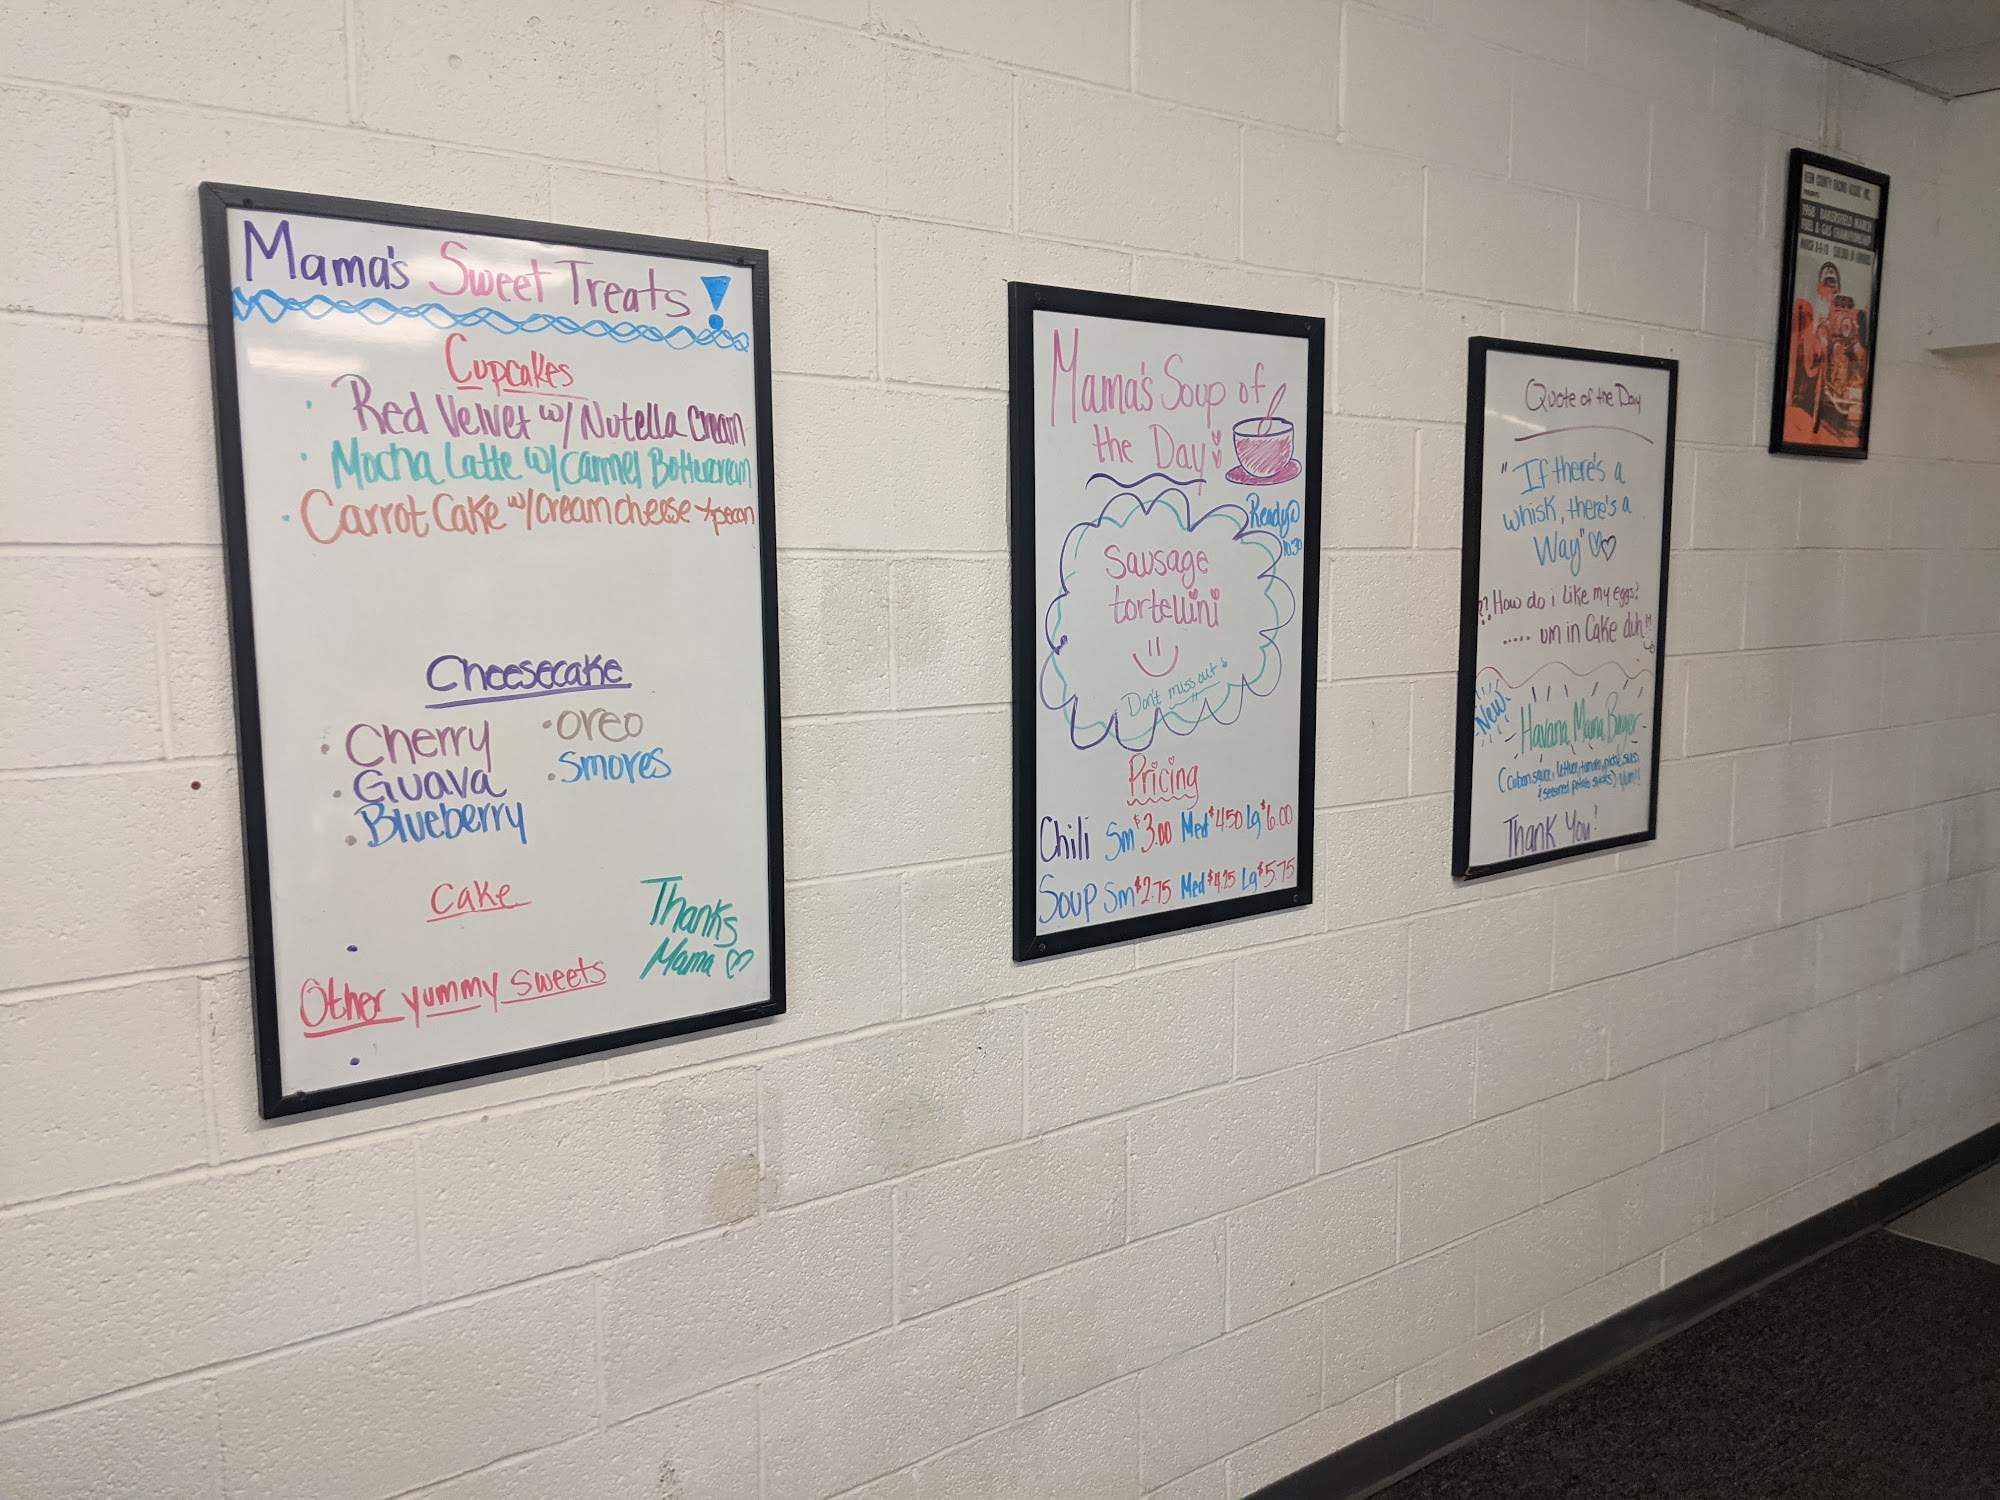 Mama's Sweet Treats!
Cupcakes
• Red Velvet w/ Nutella Cream
• Mocha Latte w/ Carmel Buttercream
• Carrot Cake w/ cream cheese + pecan
Cheesecake
• Cherry
• Guava
• Blueberry
• oreo
• Smores
Cake
•
Other yummy sweets
•
Thanks
Mama
Mama's Soup of
the Day!
Ready@
10:30
Sausage
tortellini
Don't miss out!
Pricing
Chili Sm $3.00 Med $4.50 Lg $6.00
Soup Sm $2.75 Med $4.25 Lg $5.75
Quote of the Day
"If there's a
whisk, there's a
Way"
?? How do i like my eggs?
..... um in Cake duh!!
New
Havana Mama Burger
(Cuban sauce, lettuce, tomato, pickle, swiss,
& seasoned potato sticks) Yum!!
Thank You!
KERN COUNTY RACING ASSOC. INC.
PRESENTS
1968 BAKERSFIELD MARCH
FUEL & GAS CHAMPIONSHIP
MARCH 8-9-10